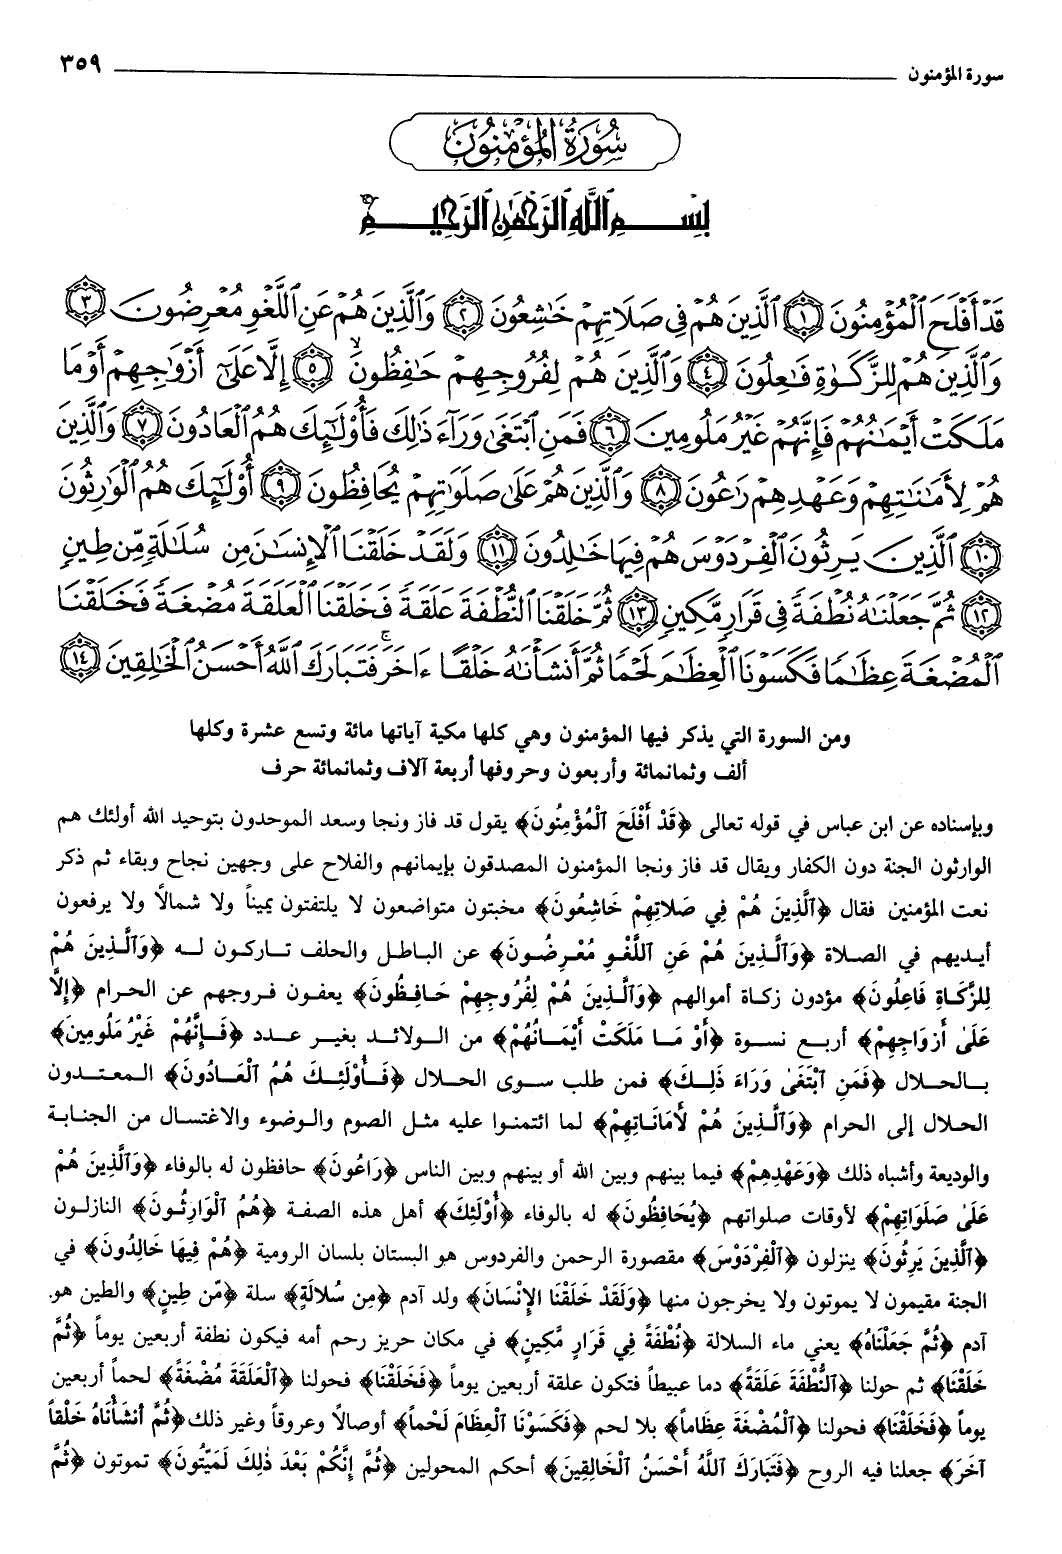 سورة المؤمنون ٣٥٩
سُورَةُ المُؤْمِنُونَ
بِسْمِ ٱللَّهِ ٱلرَّحْمَٰنِ ٱلرَّحِيمِ
قَدْ أَفْلَحَ ٱلْمُؤْمِنُونَ ١ ٱلَّذِينَ هُمْ فِى صَلَاتِهِمْ خَٰشِعُونَ ٢ وَٱلَّذِينَ هُمْ عَنِ ٱللَّغْوِ مُعْرِضُونَ ٣
وَٱلَّذِينَ هُمْ لِلزَّكَوٰةِ فَٰعِلُونَ ٤ وَٱلَّذِينَ هُمْ لِفُرُوجِهِمْ حَٰفِظُونَ ٥ إِلَّا عَلَىٰٓ أَزْوَٰجِهِمْ أَوْ مَا
مَلَكَتْ أَيْمَٰنُهُمْ فَإِنَّهُمْ غَيْرُ مَلُومِينَ ٦ فَمَنِ ٱبْتَغَىٰ وَرَآءَ ذَٰلِكَ فَأُو۟لَٰٓئِكَ هُمُ ٱلْعَادُونَ ٧ وَٱلَّذِينَ
هُمْ لِأَمَٰنَٰتِهِمْ وَعَهْدِهِمْ رَٰعُونَ ٨ وَٱلَّذِينَ هُمْ عَلَىٰ صَلَوَٰتِهِمْ يُحَافِظُونَ ٩ أُو۟لَٰٓئِكَ هُمُ ٱلْوَٰرِثُونَ
١٠ ٱلَّذِينَ يَرِثُونَ ٱلْفِرْدَوْسَ هُمْ فِيهَا خَٰلِدُونَ ١١ وَلَقَدْ خَلَقْنَا ٱلْإِنسَٰنَ مِن سُلَٰلَةٍ مِّن طِينٍ
١٢ ثُمَّ جَعَلْنَٰهُ نُطْفَةً فِى قَرَارٍ مَّكِينٍ ١٣ ثُمَّ خَلَقْنَا ٱلنُّطْفَةَ عَلَقَةً فَخَلَقْنَا ٱلْعَلَقَةَ مُضْغَةً فَخَلَقْنَا
ٱلْمُضْغَةَ عِظَٰمًا فَكَسَوْنَا ٱلْعِظَٰمَ لَحْمًا ثُمَّ أَنشَأْنَٰهُ خَلْقًا ءَاخَرَ ۚ فَتَبَارَكَ ٱللَّهُ أَحْسَنُ ٱلْخَٰلِقِينَ ١٤
ومن السورة التي يذكر فيها المؤمنون وهي كلها مكية آياتها مائة وتسع عشرة وكلها
ألف وثمانمائة وأربعون وحروفها أربعة آلاف وثمانمائة حرف
وبإسناده عن ابن عباس في قوله تعالى ﴿قَدْ أَفْلَحَ ٱلْمُؤْمِنُونَ﴾ يقول قد فاز ونجا وسعد الموحدون بتوحيد الله أولئك هم
الوارثون الجنة دون الكفار ويقال قد فاز ونجا المؤمنون المصدقون بإيمانهم والفلاح على وجهين نجاح وبقاء ثم ذكر
نعت المؤمنين فقال ﴿ٱلَّذِينَ هُمْ فِي صَلاتِهِمْ خَاشِعُونَ﴾ مخبتون متواضعون لا يلتفتون يميناً ولا شمالاً ولا يرفعون
أيديهم في الصلاة ﴿وَٱلَّذِينَ هُمْ عَنِ ٱللَّغْوِ مُعْرِضُونَ﴾ عن الباطل والحلف تاركون له ﴿وَٱلَّذِينَ هُمْ
لِلزَّكَاةِ فَاعِلُونَ﴾ مؤدون زكاة أموالهم ﴿وَٱلَّذِينَ هُمْ لِفُرُوجِهِمْ حَافِظُونَ﴾ يعفون فروجهم عن الحرام ﴿إِلاَّ
عَلَىٰ أَزْوَاجِهِمْ﴾ أربع نسوة ﴿أَوْ مَا مَلَكَتْ أَيْمَانُهُمْ﴾ من الولائد بغير عدد ﴿فَإِنَّهُمْ غَيْرُ مَلُومِينَ﴾
بالحلال ﴿فَمَنِ ٱبْتَغَىٰ وَرَاءَ ذَلِكَ﴾ فمن طلب سوى الحلال ﴿فَأُوْلَئِكَ هُمُ ٱلْعَادُونَ﴾ المعتدون
الحلال إلى الحرام ﴿وَٱلَّذِينَ هُمْ لأَمَانَاتِهِمْ﴾ لما ائتمنوا عليه مثل الصوم والوضوء والاغتسال من الجنابة
والوديعة وأشباه ذلك ﴿وَعَهْدِهِمْ﴾ فيما بينهم وبين الله أو بينهم وبين الناس ﴿رَاعُونَ﴾ حافظون له بالوفاء ﴿وَٱلَّذِينَ هُمْ
عَلَىٰ صَلَوَاتِهِمْ﴾ لأوقات صلواتهم ﴿يُحَافِظُونَ﴾ له بالوفاء ﴿أُوْلَئِكَ﴾ أهل هذه الصفة ﴿هُمُ ٱلْوَارِثُونَ﴾ النازلون
﴿ٱلَّذِينَ يَرِثُونَ﴾ ينزلون ﴿ٱلْفِرْدَوْسَ﴾ مقصورة الرحمن والفردوس هو البستان بلسان الرومية ﴿هُمْ فِيهَا خَالِدُونَ﴾ في
الجنة مقيمون لا يموتون ولا يخرجون منها ﴿وَلَقَدْ خَلَقْنَا الإِنْسَانَ﴾ ولد آدم ﴿مِن سُلالَةٍ﴾ سلة ﴿مّن طِينٍ﴾ والطين هو
آدم ﴿ثُمَّ جَعَلْنَاهُ﴾ يعني ماء السلالة ﴿نُطْفَةً فِي قَرَارٍ مَّكِينٍ﴾ في مكان حريز رحم أمه فيكون نطفة أربعين يوماً ﴿ثُمَّ
خَلَقْنَا﴾ ثم حولنا ﴿ٱلنُّطْفَةَ عَلَقَةً﴾ دما عبيطاً فتكون علقة أربعين يوماً ﴿فَخَلَقْنَا﴾ فحولنا ﴿ٱلْعَلَقَةَ مُضْغَةً﴾ لحماً أربعين
يوماً ﴿فَخَلَقْنَا﴾ فحولنا ﴿ٱلْمُضْغَةَ عِظَاماً﴾ بلا لحم ﴿فَكَسَوْنَا ٱلْعِظَامَ لَحْماً﴾ أوصالاً وعروقاً وغير ذلك ﴿ثُمَّ أَنشَأْنَاهُ خَلْقاً
آخَرَ﴾ جعلنا فيه الروح ﴿فَتَبَارَكَ ٱللَّهُ أَحْسَنُ ٱلْخَالِقِينَ﴾ أحكم المحولين ﴿ثُمَّ إِنَّكُمْ بَعْدَ ذٰلِكَ لَمَيّتُونَ﴾ تموتون ﴿ثُمَّ